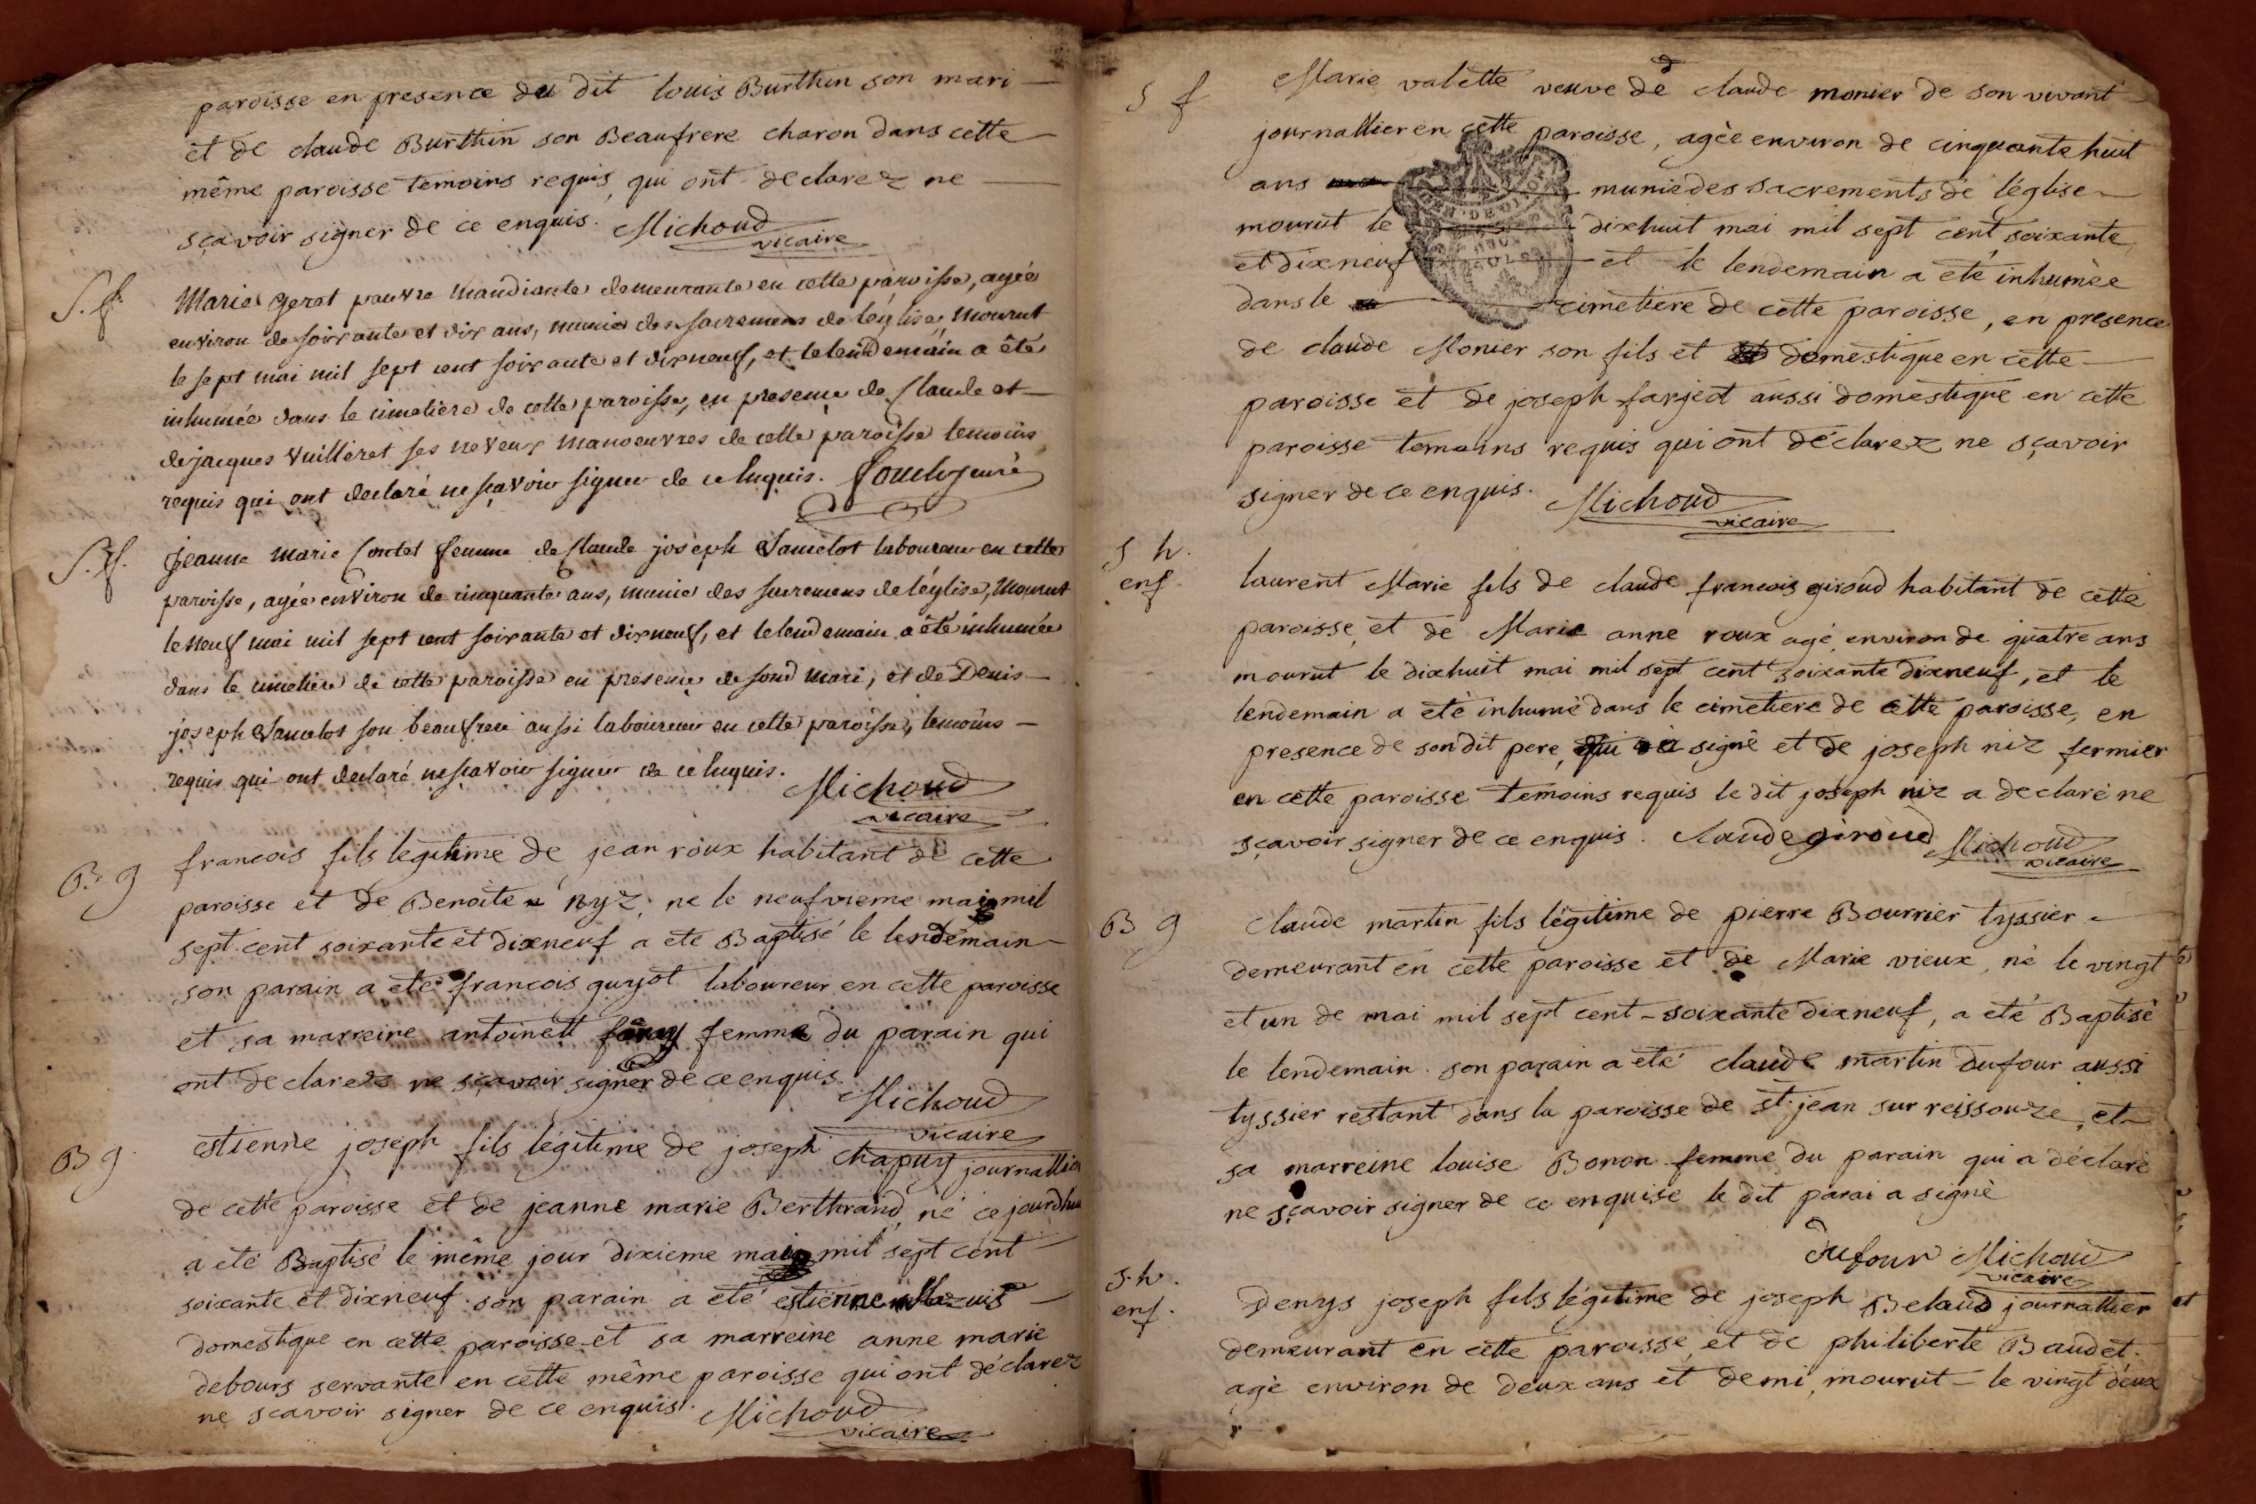 paroisse en presence du dit louis Burthin son mari
et de claude Burthin son Beaufrere charon dans cette
même paroisse temoins requis, qui ont declarez ne
sçavoir signer de ce enquis. Michoud
vicaire
S. f.
Marie geret pauvre mandiante demeurante en cette paroisse, agée
environ de soixante et dix ans, munie des sacremens de l'église, mourut
le sept mai mil sept cent soixante et dixneuf, et le lendemain a été
inhumée dans le cimetiere de cette paroisse, en presence de Claude et
de jacques Vuilleret ses neveux manoeuvres de cette paroisse temoins
requis qui ont declaré ne sçavoir signer de ce Enquis.
S. f.
Jeanne Marie Contet femme de Claude joseph Jamelot laboureur en cette
paroisse, agée environ de cinquante ans, munie des sacremens de l'église, mourut
le neuf mai mil sept cent soixante et dixneuf, et le lendemain a été inhumée
dans le cimetiere de cette paroisse en presence de sond mari, et de Denis
joseph Jamelot son beaufrere aussi laboureur en cette paroisse, temoins
requis qui ont declaré ne sçavoir signer de ce Enquis.
Michoud
vicaire
B. g
francois fils legitime de jean roux habitant de cette
paroisse et de Benoite nyz, ne le neufvieme mai mil
sept cent soixante et dixneuf a eté Baptisé le lendemain
son parain a eté francois guyot laboureur en cette paroisse
et sa marreine antoinett femme du parain qui
ont declarez ne sçavoir signer de ce enquis
Michoud
vicaire
B g.
estienne joseph fils légitime de joseph chapuy journallier
de cette paroisse et de jeanne marie Berthrand, né ce jourdhui
a eté Baptisé le même jour dixieme mai mil sept cent
soixante et dixneuf. son parain a eté estienne Mazuis
domestique en cette paroisse et sa marreine anne marie
debours servante en cette même paroisse qui ont déclarez
ne scavoir signer de ce enquis. Michoud
vicaire
S f
Marie valette veuve de claude monier de son vivant
journallier en cette paroisse, agée environ de cinquante huit
ans munie des sacrements de l'église
mourut le dixhuit mai mil sept cent soixante
et dixneuf et le lendemain a eté inhumèe
dans le cimetiere de cette paroisse, en presence
de claude Monier son fils et domestique en cette
paroisse et de joseph farjeot aussi domestique en cette
paroisse temoins requis qui ont déclarez ne sçavoir
signer de ce enquis. Michoud
vicaire
S h.
enf.
laurent Marie fils de claude francois giroud habitant de cette
paroisse, et de Marie anne roux agé environ de quatre ans
mourut le dixhuit mai mil sept cent soixante dixneuf, et le
lendemain a eté inhumé dans le cimetiere de cette paroisse, en
presence de son dit pere, qui a signé et de joseph niz fermier
en cette paroisse temoins requis le dit joseph niz a declaré ne
sçavoir signer de ce enquis. Claude giroud Michoud
vicaire
B g
Claude martin fils légitime de pierre Bourrier tyssier
demeurant en cette paroisse et de Marie vieux, né le vingt
et un de mai mil sept cent soixante dixneuf, a eté Baptisé
le lendemain. son parain a eté claude martin dufour aussi
tyssier restant dans la paroisse de st. jean sur reissouze, et
sa marreine louise Bonon femme du parain qui a déclaré
ne sçavoir signer de ce enquise le dit parai a signé
dufour Michoud
vicaire
S. h.
enf.
Denys joseph fils légitime de joseph Belaud journallier
demeurant en cette paroisse, et de philiberte Baudet.
agé environ de deux ans et demi, mourut le vingt deux